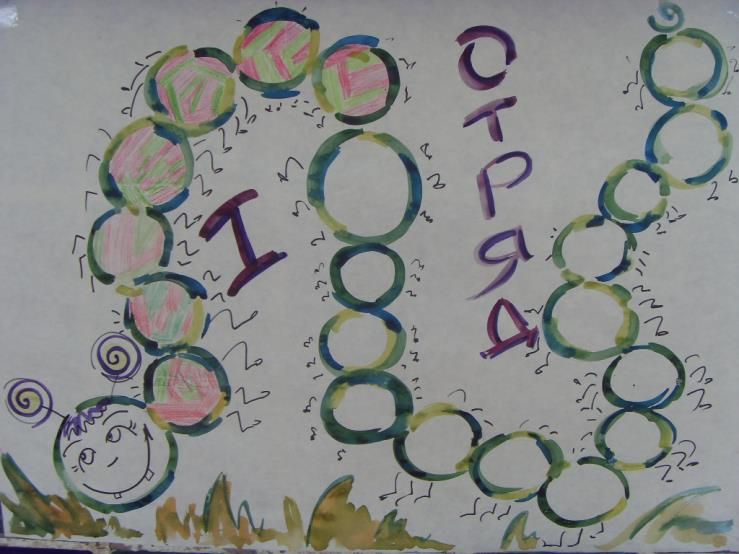 I
ОТРЯД